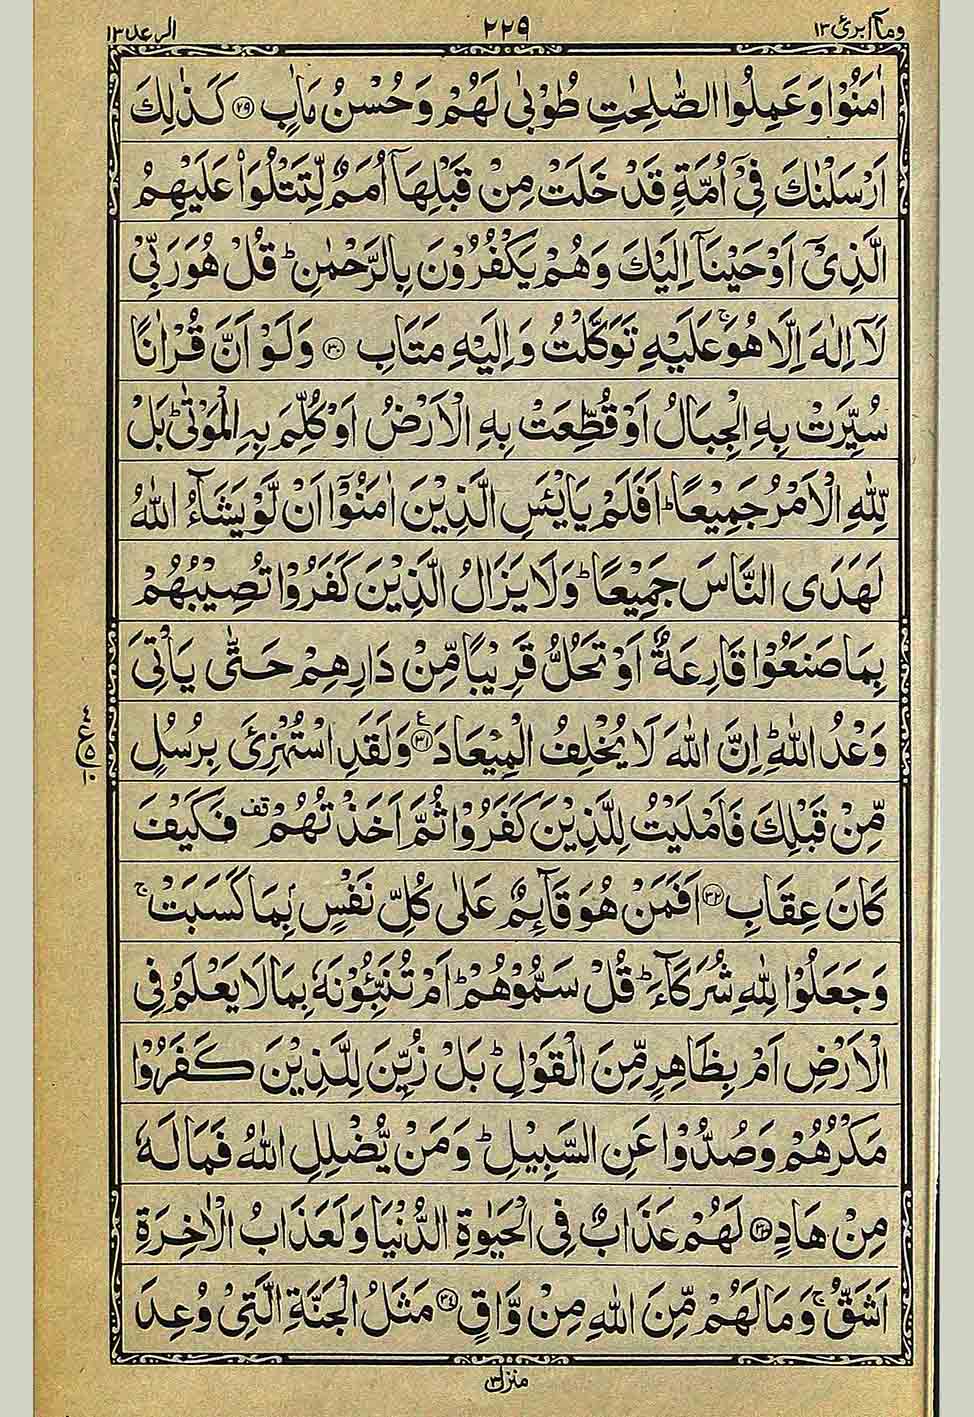 وماۤ ابرئ ١٣
٢٢٩
الرعد ١٣
اٰمَنُوۡا وَعَمِلُوا الصّٰلِحٰتِ طُوۡبٰى لَهُمۡ وَحُسۡنُ مَاٰبٍ ﴿٢٩﴾ كَذٰلِكَ
اَرۡسَلۡنٰكَ فِىۡۤ اُمَّةٍ قَدۡ خَلَتۡ مِنۡ قَبۡلِهَاۤ اُمَمٌ لِّتَتۡلُوَا۟ عَلَيۡهِمُ
الَّذِىۡۤ اَوۡحَيۡنَاۤ اِلَيۡكَ وَهُمۡ يَكۡفُرُوۡنَ بِالرَّحۡمٰنِؕ قُلۡ هُوَ رَبِّىۡ
لَاۤ اِلٰهَ اِلَّا هُوَۚ عَلَيۡهِ تَوَكَّلۡتُ وَاِلَيۡهِ مَتَابِ ﴿٣٠﴾ وَلَوۡ اَنَّ قُرۡاٰنًا
سُيِّرَتۡ بِهِ الۡجِبَالُ اَوۡ قُطِّعَتۡ بِهِ الۡاَرۡضُ اَوۡ كُلِّمَ بِهِ الۡمَوۡتٰىؕ بَلۡ
لِّلّٰهِ الۡاَمۡرُ جَمِيۡعًاؕ اَفَلَمۡ يَايۡـئَسِ الَّذِيۡنَ اٰمَنُوۡۤا اَنۡ لَّوۡ يَشَآءُ اللّٰهُ
لَهَدَى النَّاسَ جَمِيۡعًاؕ وَلَا يَزَالُ الَّذِيۡنَ كَفَرُوۡا تُصِيۡبُهُمۡ
بِمَا صَنَعُوۡا قَارِعَةٌ اَوۡ تَحُلُّ قَرِيۡبًا مِّنۡ دَارِهِمۡ حَتّٰى يَاۡتِىَ
وَعۡدُ اللّٰهِؕ اِنَّ اللّٰهَ لَا يُخۡلِفُ الۡمِيۡعَادَ ﴿٣١﴾ وَلَقَدِ اسۡتُهۡزِئَ بِرُسُلٍ
مِّنۡ قَبۡلِكَ فَاَمۡلَيۡتُ لِلَّذِيۡنَ كَفَرُوۡا ثُمَّ اَخَذۡتُهُمۡ قف فَكَيۡفَ
كَانَ عِقَابِ ﴿٣٢﴾ اَفَمَنۡ هُوَ قَآئِمٌ عَلٰى كُلِّ نَفۡسٍۢ بِمَا كَسَبَتۡۚ
وَجَعَلُوۡا لِلّٰهِ شُرَكَآءَؕ قُلۡ سَمُّوۡهُمۡؕ اَمۡ تُنَبِّـئُـوۡنَهٗ بِمَا لَا يَعۡلَمُ فِى
الۡاَرۡضِ اَمۡ بِظَاهِرٍ مِّنَ الۡقَوۡلِؕ بَلۡ زُيِّنَ لِلَّذِيۡنَ كَفَرُوۡا
مَكۡرُهُمۡ وَصُدُّوۡا عَنِ السَّبِيۡلِؕ وَمَنۡ يُّضۡلِلِ اللّٰهُ فَمَا لَهٗ
مِنۡ هَادٍ ﴿٣٣﴾ لَهُمۡ عَذَابٌ فِى الۡحَيٰوةِ الدُّنۡيَا وَلَعَذَابُ الۡاٰخِرَةِ
اَشَقُّۚ وَمَا لَهُمۡ مِّنَ اللّٰهِ مِنۡ وَّاقٍ ﴿٣٤﴾ مَثَلُ الۡجَنَّةِ الَّتِىۡ وُعِدَ
منزل ٣